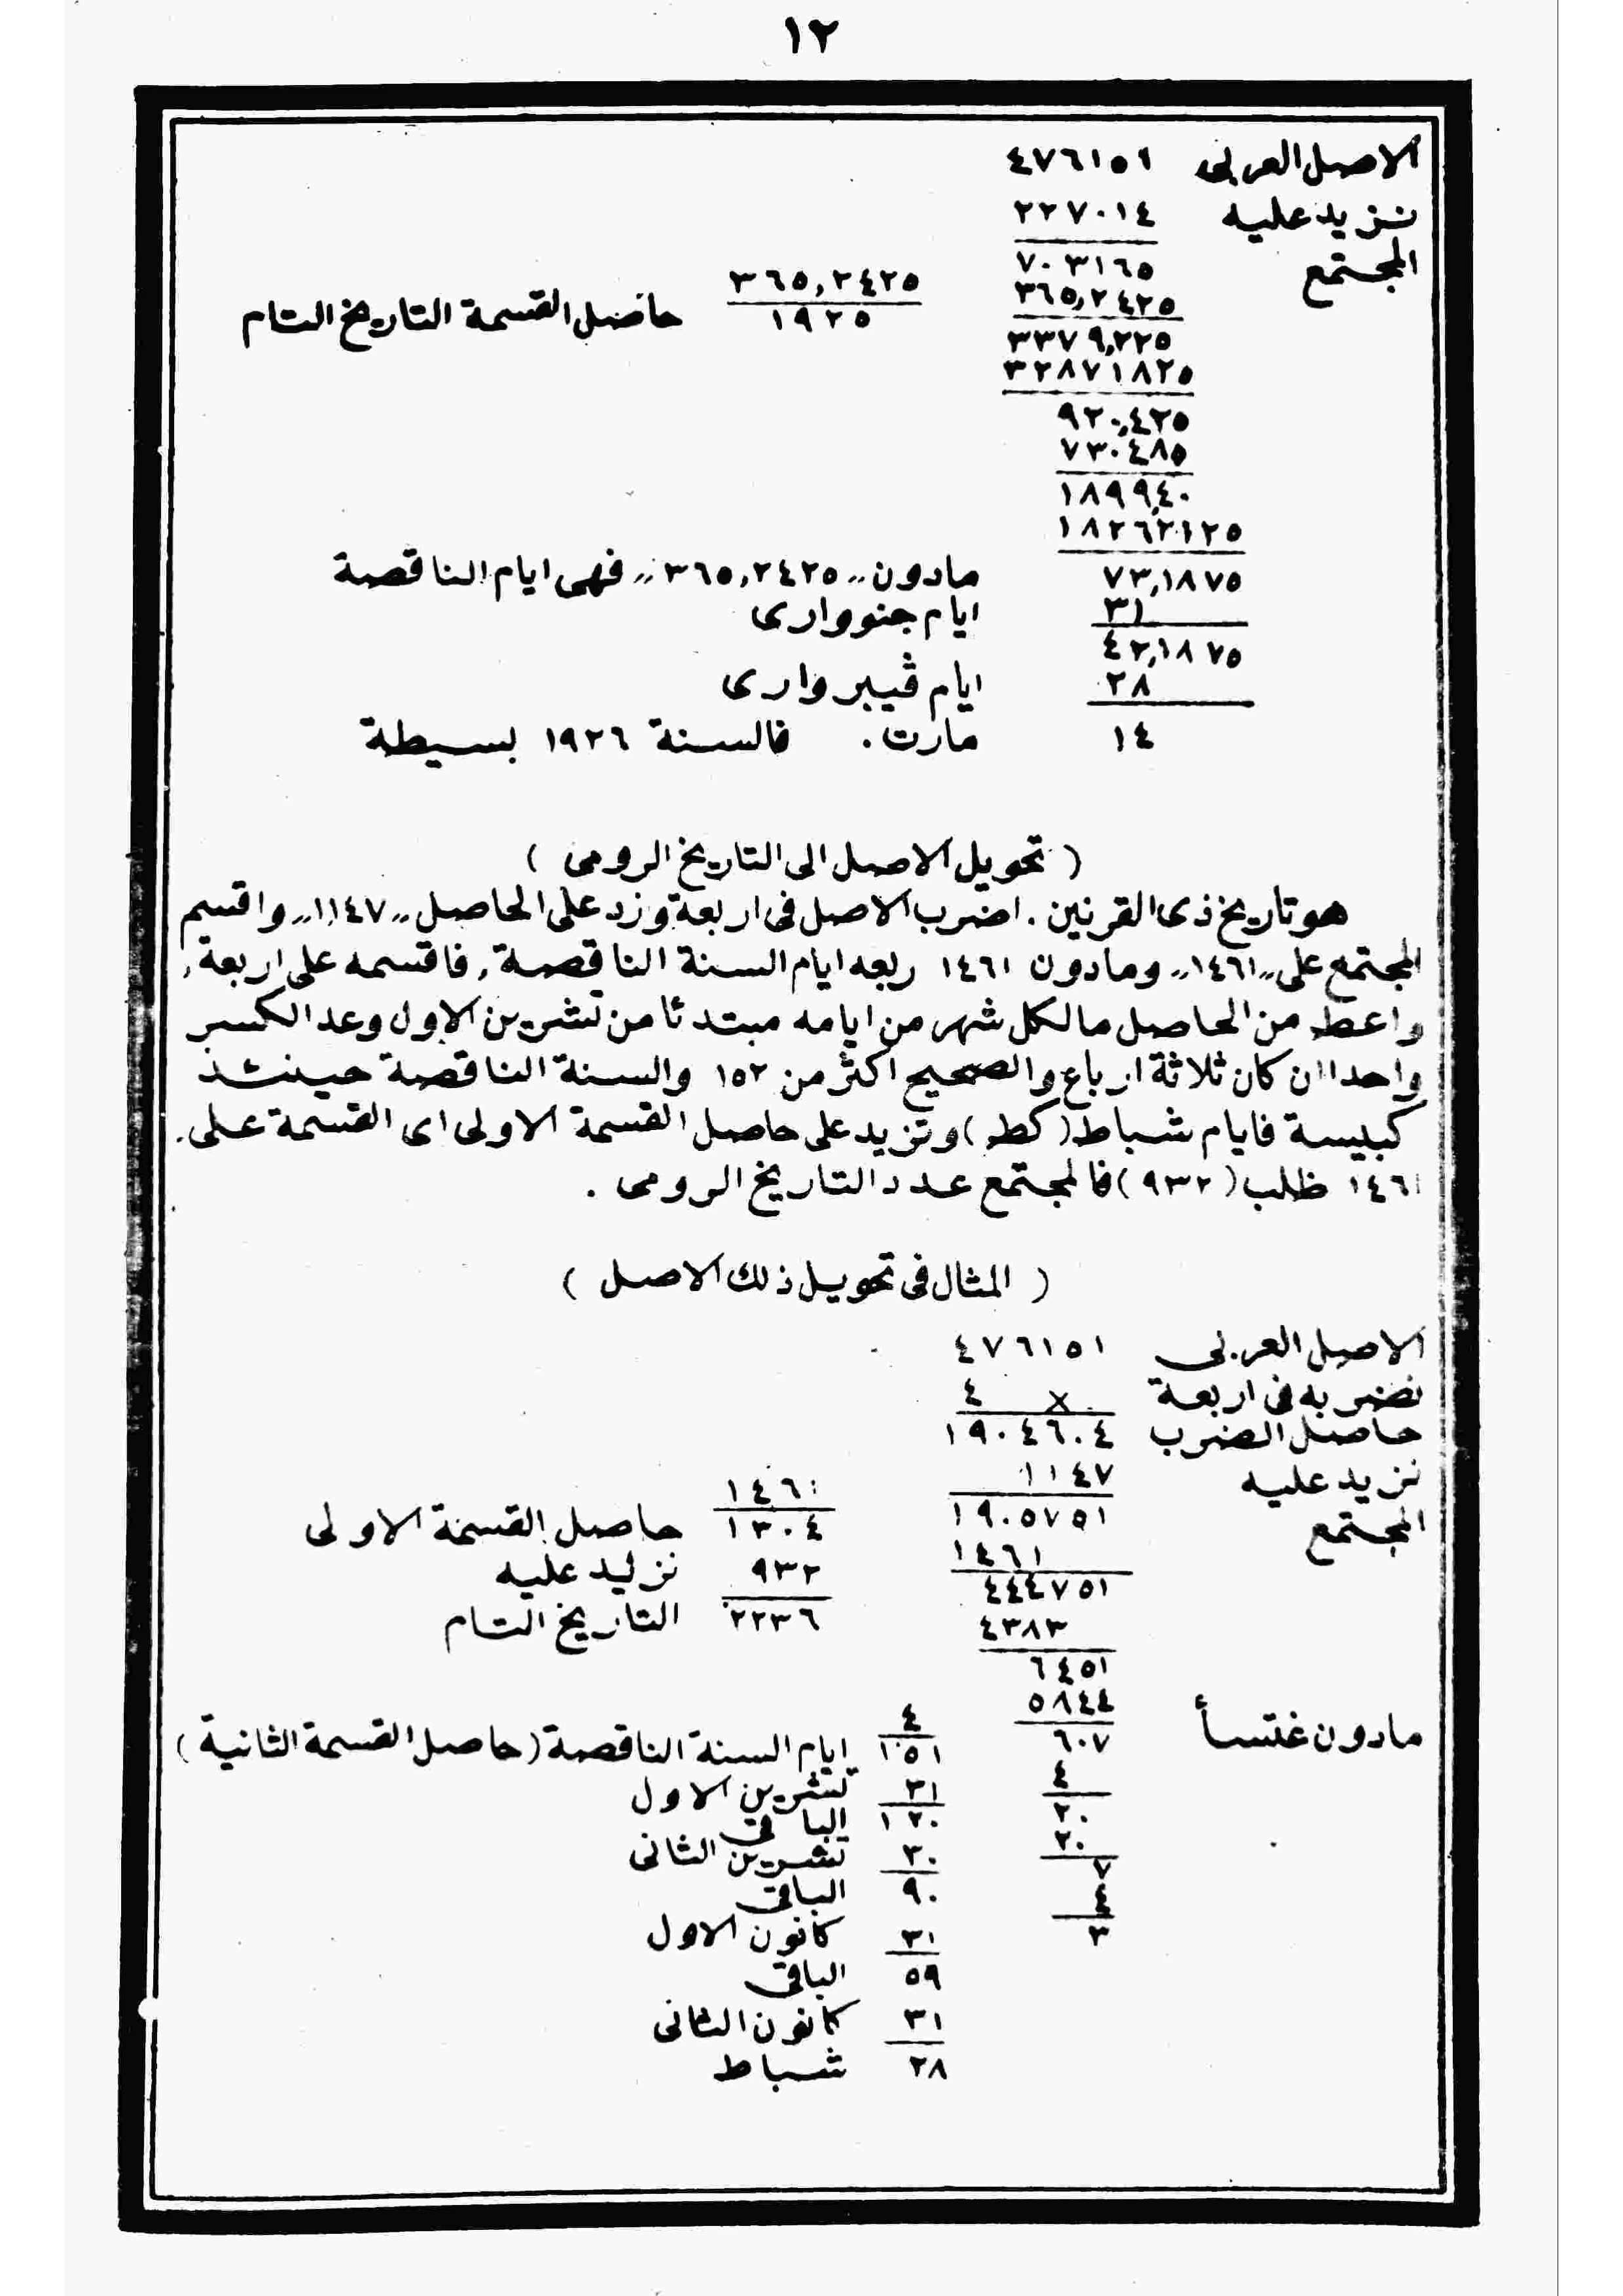 ١٢
الاصل العربى ٤٧٦١٥١
نزيد عليه ٢٢٧٠١٤
المجتمع ٧٠٣١٦٥
٣٦٥,٢٤٢٥
٣٦٥,٢٤٢٥
١٩٢٥ حاصل القسمة التاريخ التام
٣٣٧٩,٢٢٥
٣٢٨٧١٨٢٥
٩٢٠,٤٢٥
٧٣٠٤٨٥
١٨٩٩,٤٠
١٨٢٦,٢١٢٥
٧٣,١٨٧٥ مادون ,,٣٦٥,٢٤٢٥,, فهى ايام الناقصة
٣١ ايام جنووارى
٤٢,١٨٧٥
٢٨ ايام ڤيبروارى
١٤ مارت . فالسنة ١٩٢٦ بسيطة
( تحويل الاصل الى التاريخ الرومى )
هو تاريخ ذى القرنين . اضرب الاصل فى اربعة وزد على الحاصل ,,١١٤٧,, واقسم
المجتمع على ,,١٤٦١,, ومادون ١٤٦١ ربعه ايام السنة الناقصة, فاقسمه على اربعة,
واعط من الحاصل ما لكل شهر من ايامه مبتدئا من تشرين الاول وعد الكسر
واحدا ان كان ثلاثة ارباع والصحيح اكثر من ١٥٢ والسنة الناقصة حينئذ
كبيسة فايام شباط (كط) وتزيد على حاصل القسمة الاولى اى القسمة على
١٤٦١ ظلب (٩٣٢) فالمجتمع عدد التاريخ الرومى .
( المثال فى تحويل ذلك الاصل )
الاصل العربى ٤٧٦١٥١
نضربه فى اربعة × ٤
حاصل الضرب ١٩٠٤٦٠٤
نزيد عليه ١١٤٧
المجتمع ١٩٠٥٧٥١
١٤٦١
١٣٠٤ حاصل القسمة الاولى
٩٣٢ نزيد عليه
٢٢٣٦ التاريخ التام
١٤٦١
٤٤٤٧٥١
٤٣٨٣
٦٤٥١
٥٨٤٤
مادون غتسأ ٦٠٧
٤
١٥١ ايام السنة الناقصة (حاصل القسمة الثانية)
٤
٢٠
٢٠
٧
٤
٣
٣١ تشرين الاول
١٢٠ الباقى
٣٠ تشرين الثانى
٩٠ الباقى
٣١ كانون الاول
٥٩ الباقى
٣١ كانون الثانى
٢٨ شباط